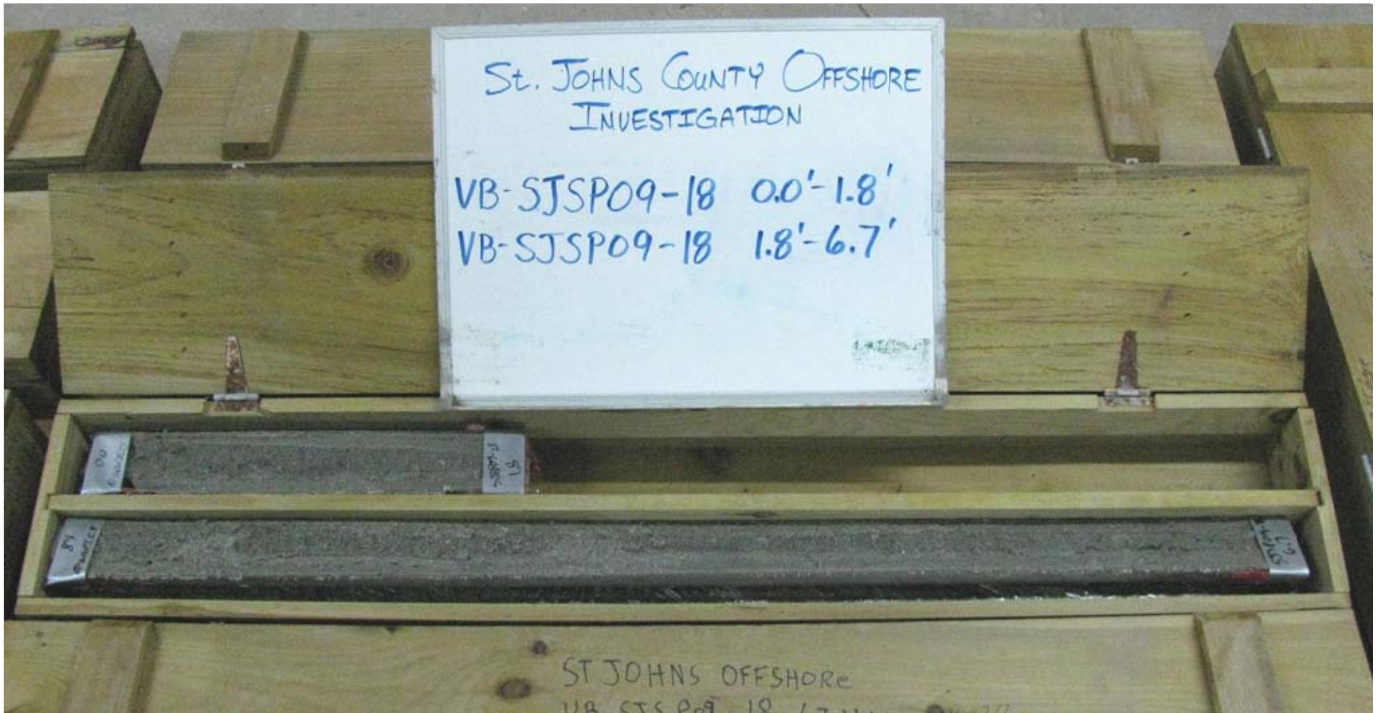 St. JOHNS COUNTY OFFSHORE
INVESTIGATION
VB-SJSP09-18 0.0'-1.8'
VB-SJSP09-18 1.8'-6.7'
0.0
1.8
1.8
6.7
ST JOHNS OFFSHORE
VB SJSP09-18